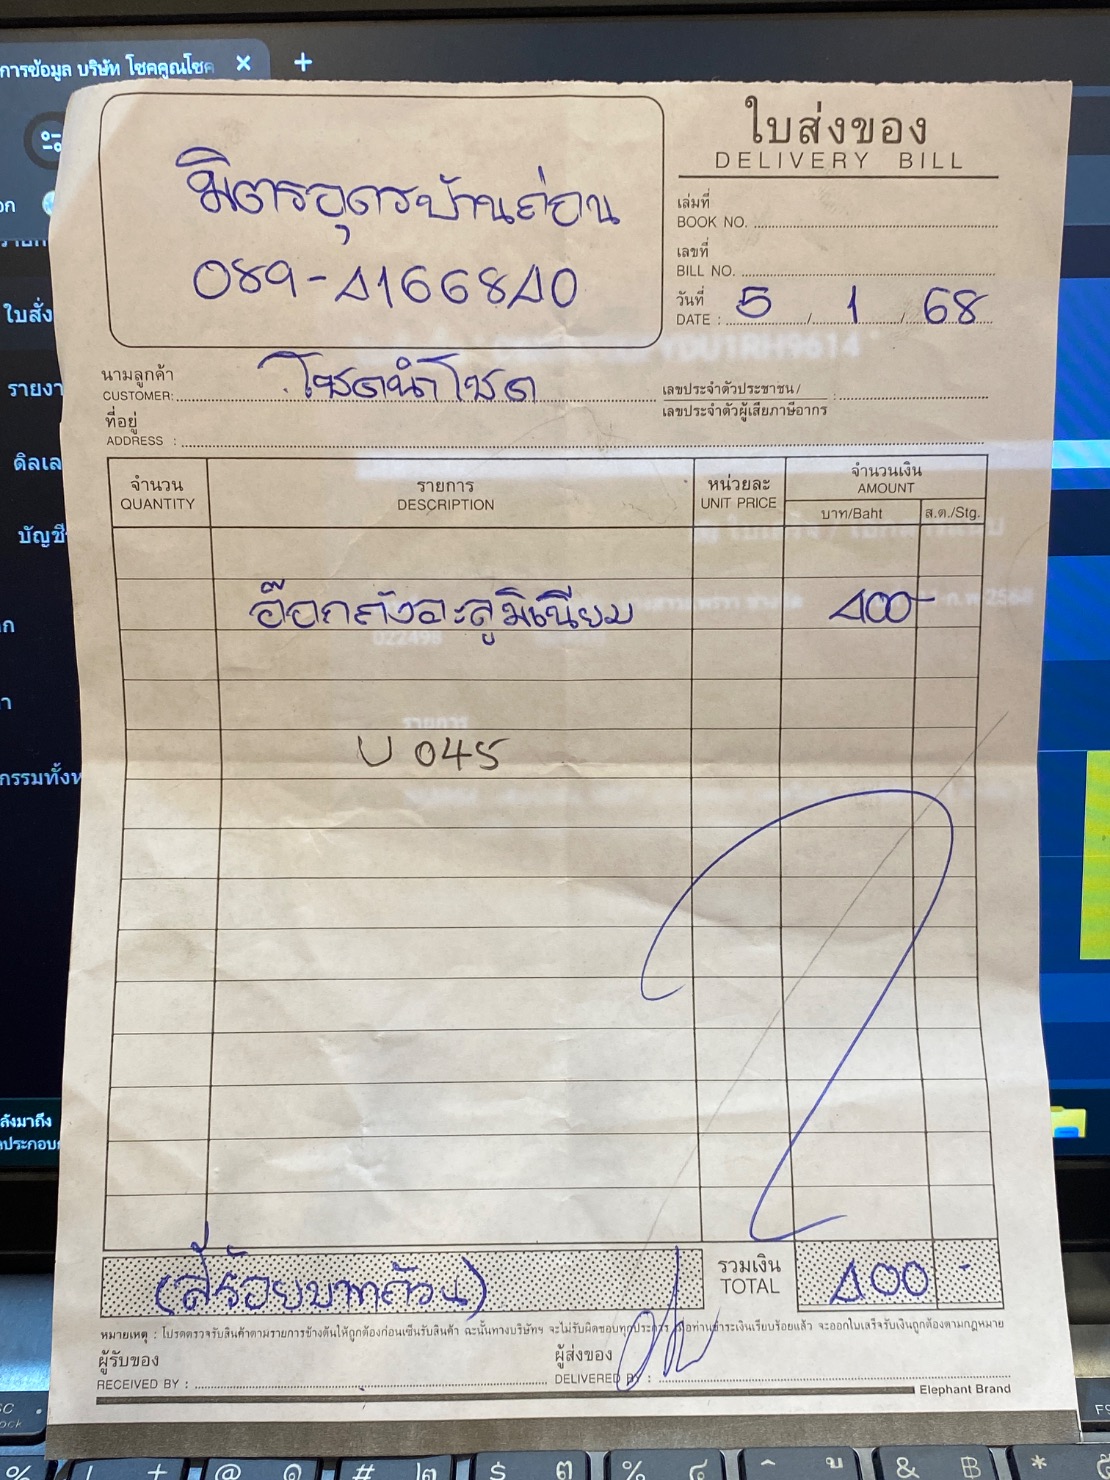 การข้อมูล บริษัท โชคคูณโชค
ใบสั่ง
รายงา
ดิลเล
บัญชี
กรรมทั้งห
ลังมาถึง
ประกอบ
มิตรอุดรบ้านถ่อน
089-4166840
ใบส่งของ
DELIVERY BILL
เล่มที่
BOOK NO.
เลขที่
BILL NO.
วันที่
DATE : 5 / 1 / 68
นามลูกค้า
CUSTOMER: โชคนำโชค
เลขประจำตัวประชาชน / :
เลขประจำตัวผู้เสียภาษีอากร
ที่อยู่
ADDRESS :
จำนวน รายการ หน่วยละ จำนวนเงิน
QUANTITY DESCRIPTION UNIT PRICE AMOUNT
บาท/Baht ส.ต./Stg.
อ๊อกถังอะลูมิเนียม 400-
U 045
(สี่ร้อยบาทถ้วน) รวมเงิน 400 -
TOTAL
หมายเหตุ : โปรดตรวจรับสินค้าตามรายการข้างต้นให้ถูกต้องก่อนเซ็นรับสินค้า ฉะนั้นทางบริษัทฯ จะไม่รับผิดชอบทุกประการ เมื่อท่านชำระเงินเรียบร้อยแล้ว จะออกใบเสร็จรับเงินถูกต้องตามกฎหมาย
ผู้รับของ ผู้ส่งของ
RECEIVED BY : DELIVERED BY :
Elephant Brand